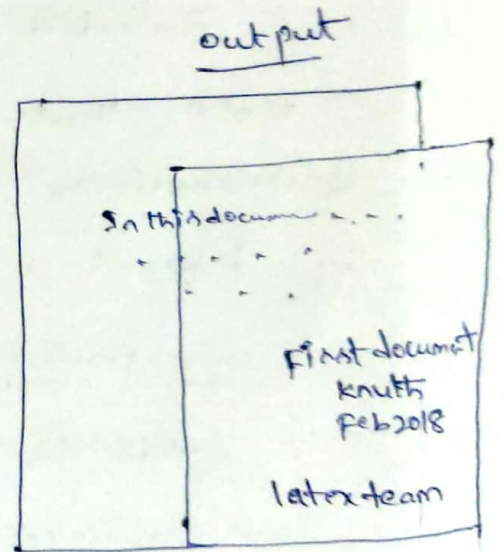 output
In this docum
First document
Knuth
Feb 2018
latex team